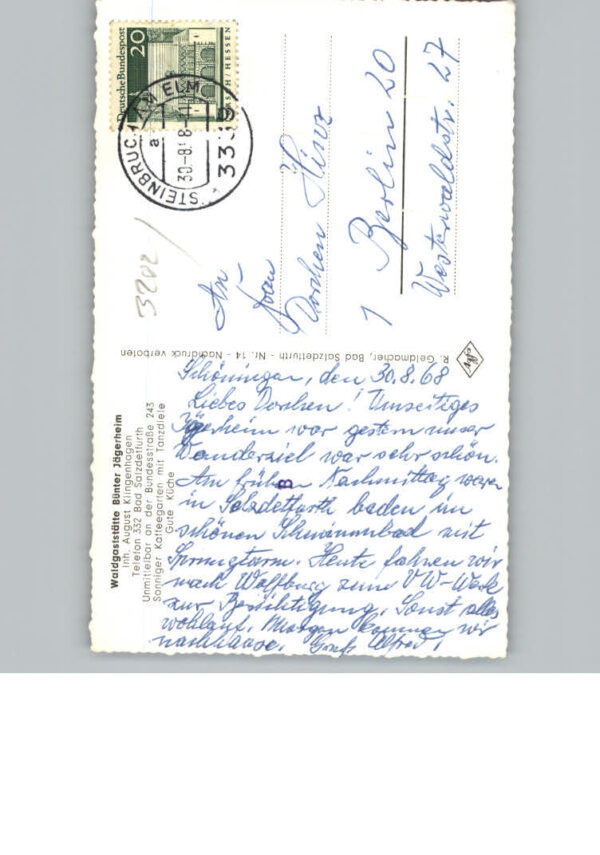 Waldgaststätte Bünter Jägerheim
Inh. August Klingenhagen
Telefon 332 Bad Salzdetfurth
Unmittelbar an der Bundesstraße 243
Sonniger Kaffeegarten mit Tanzdiele
Gute Küche
Schöningen, den 30.8.68
Liebes Dorchen! Umseitiges
Jägerheim war gestern unser
Wanderziel war sehr schön.
Am frühen Nachmittag waren
in Salzdetfurth baden im
schönen Schwimmbad mit
Sprungturm. Heute fahren wir
nach Wolfburg zum VW-Werk
zur Besichtigung. Sonst alles
wohlauf. Morgen kommen wir
nachhause. Gruß Alfred.
B
R. Geldmacher, Bad Salzdetfurth - Nr. 14 - Nachdruck verboten
Agfa
3202/
Deutsche Bundespost
20
LORSCH/HESSEN
STEINBRUCH AM ELM
a
30-8.68-11
3339
An
Frau
Dorchen Hinz
1 Berlin 20
Westerwaldstr. 27